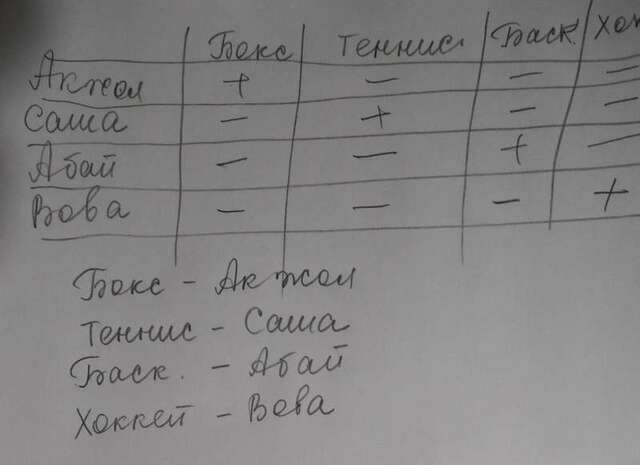 Бокс Теннис. Баск. Хок
Акжол + — — —
Саша — + — —
Абай — — + —
Вова — — — +
Бокс – Акжол
Теннис – Саша
Баск. – Абай
Хоккей – Вова